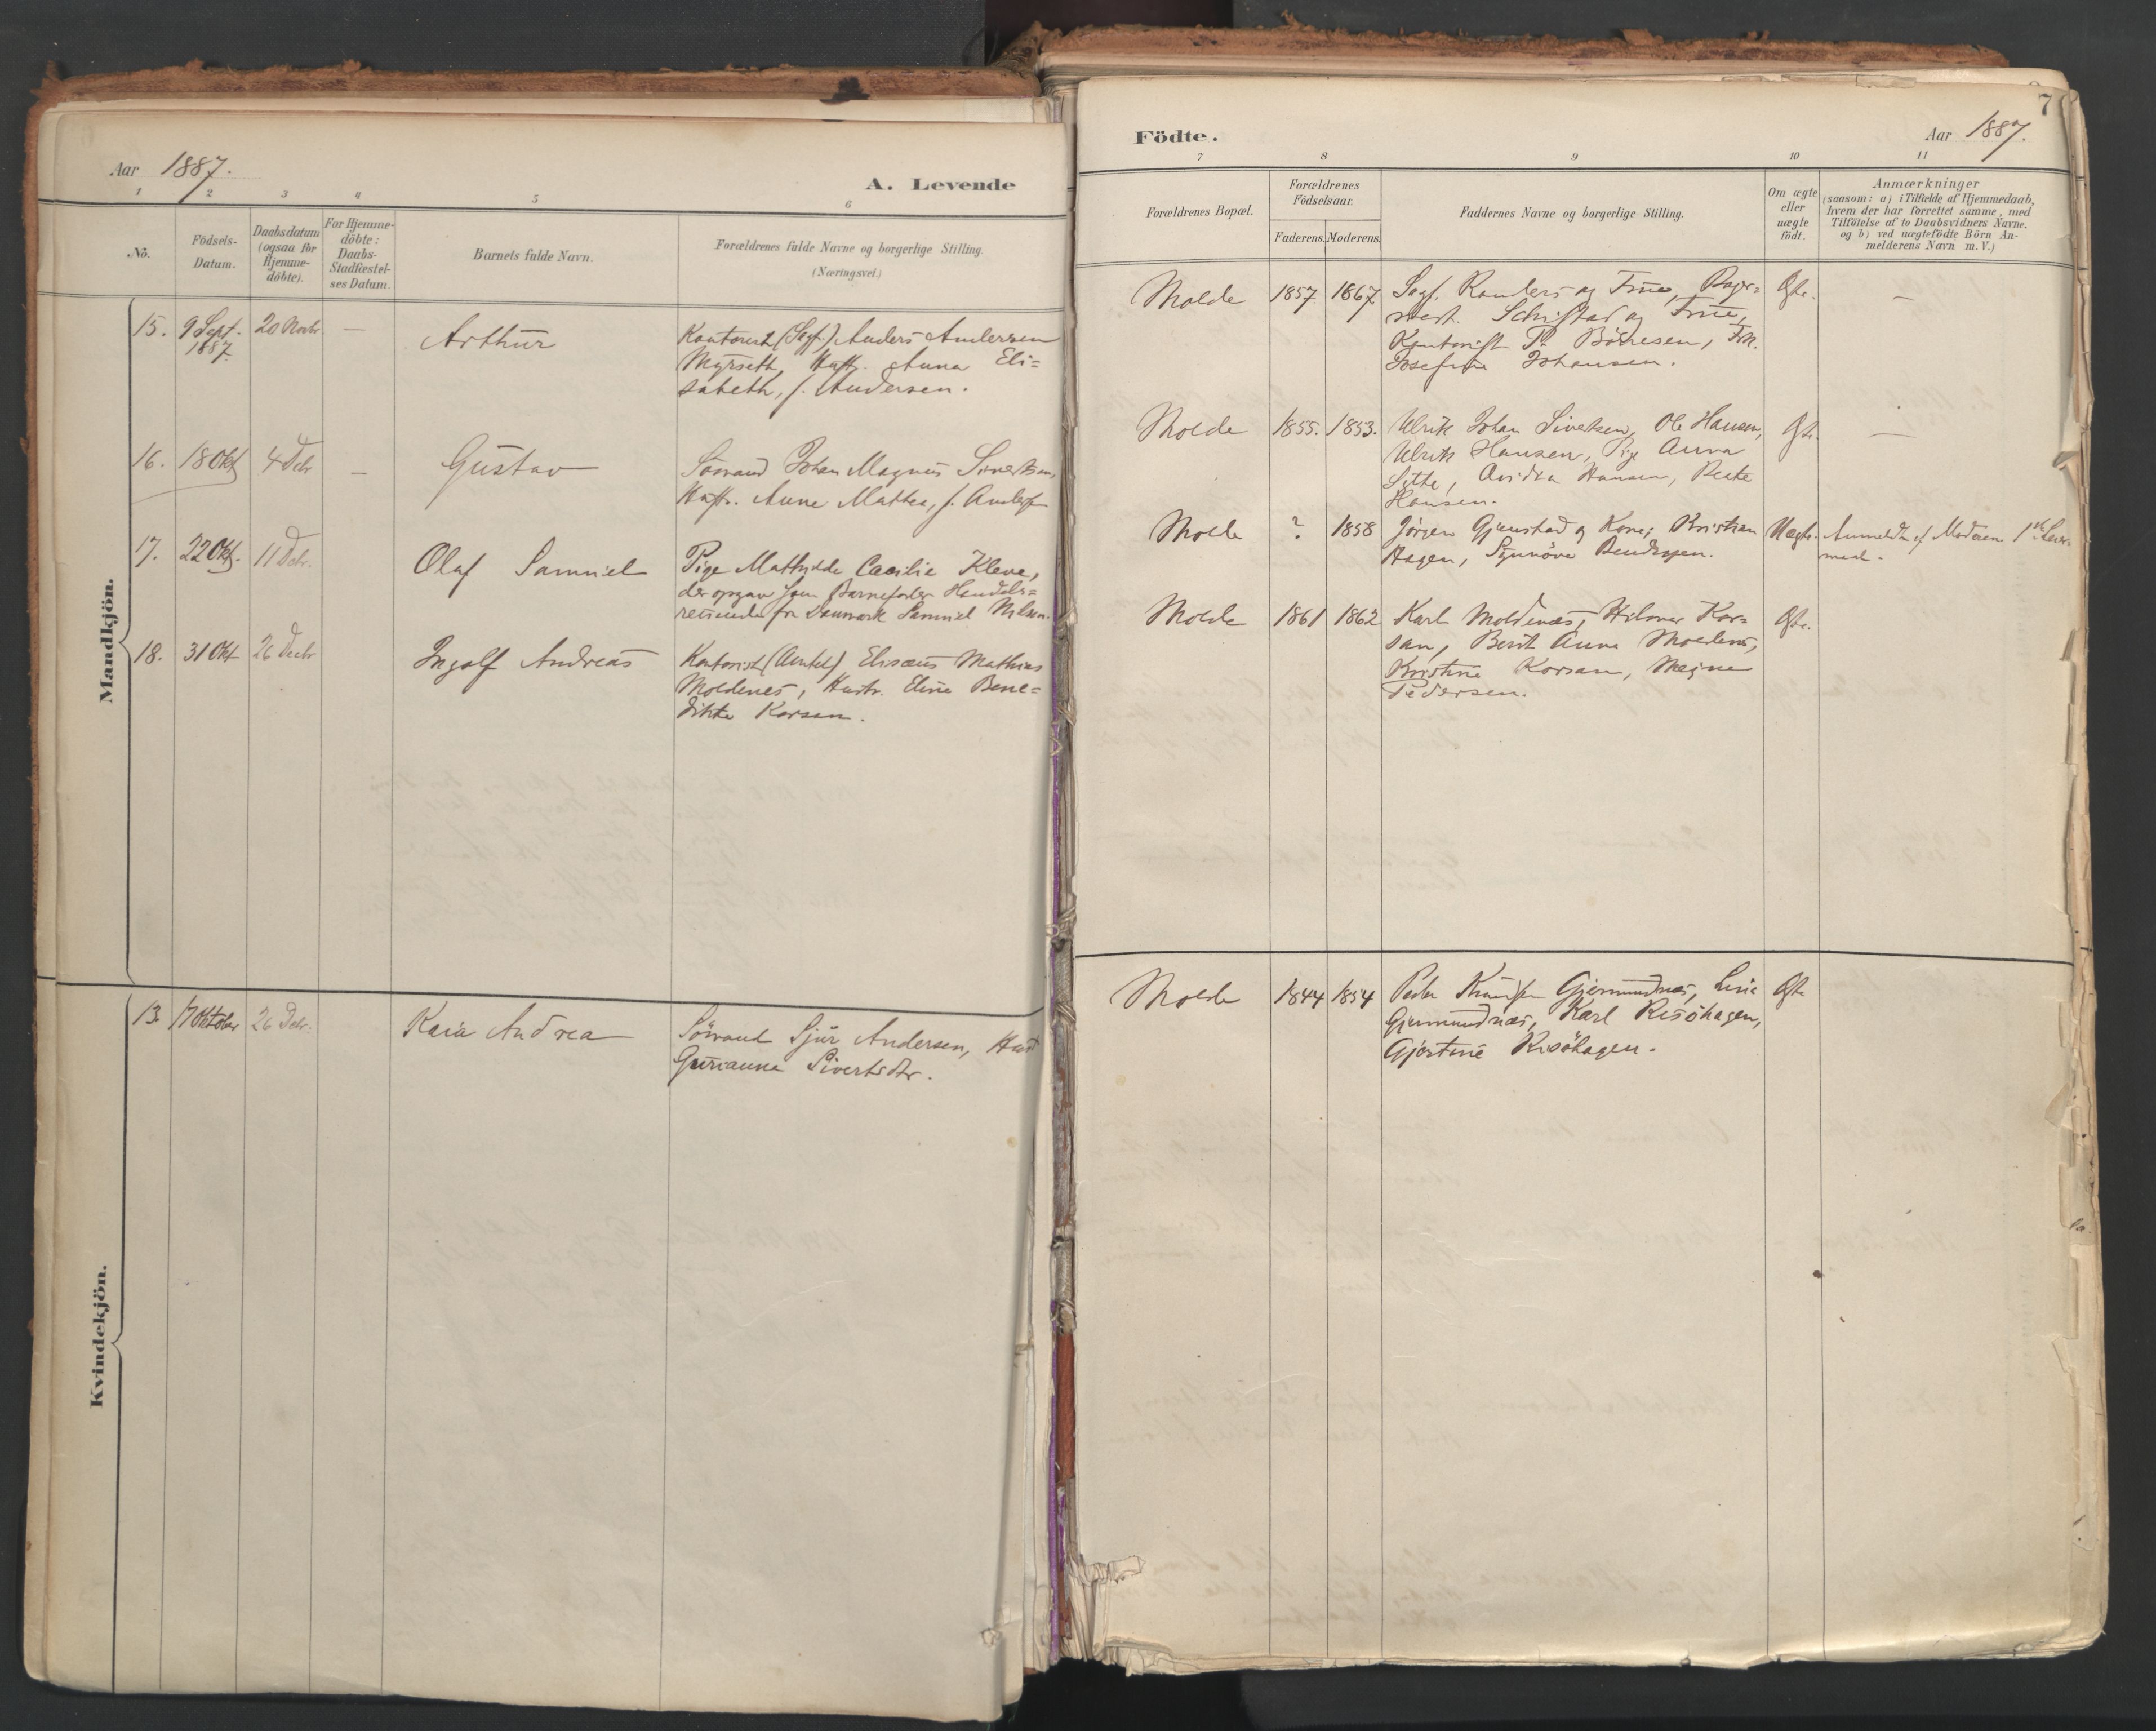 Aar 1887.
A. Levende
1 2 3 4 5 6
No.
Födsels-
Datum.
Daabsdatum
(ogsaa for
Hjemme-
döbte).
For Hjemme-
döbte:
Daabs-
Stadfæstel-
ses Datum.
Barnets fulde Navn.
Forældrenes fulde Navne og borgerlige Stilling.
(Næringsvei.)
Mandkjön.
15. 9 Sept. 20 Novbr. — Arthur
1887
Kontorist (Sagf.) Anders Andersen
Myrseth, Hustr. Anna Eli=
sabeth, f. Andersen.
16. 18 Okt 4 Debr — Gustav
Sömand Johan Magnus Sivertsen,
Hustr. Anne Mathea, f. Andersen
17. 22 Okt. 11 Debr. Olaf Samuel
Pige Mathilde Cacilie Kleve,
der opgav som Barnefader Handels=
reisende fra Danmark Samuel Nilsen.
18. 31 Okt 26 Decbr Ingolf Andreas
Kontorist (Amtet) Elisæus Mathias
Moldenes, Hustr. Eline Bene=
dikte Korsan.
Kvindekjön.
13. 17 Oktober 26 Debr. Kaia Andrea
Sömand Sjur Andersen, Hust
Gurianna Sivertsdtr.
Födte.
Aar 1887.
7
7 8 9 10 11
Forældrenes Bopæl.
Forældrenes
Födselsaar.
Faderens. Moderens.
Faddernes Navne og borgerlige Stilling.
Om ægte
eller
uægte
födt.
Anmærkninger
(saasom: a) i Tilfælde af Hjemmedaab,
hvem der har forrettet samme, med
Tilföielse af to Daabsvidners Navne.
og b) ved uægtefödte Börn An-
melderens Navn m. V.)
Molde 1857 1867 Sagf. Randers og Frue, Bager=
mest. Schistad og Frue,
Kontorist P. Börresen, Frk.
Josefine Johansen.
Ægte. —
Molde 1855. 1853. Ulrik Johan Sivertsen, Ole Hansen,
Ulrik Hansen, Pige Anna
Hansen, Beate
Hansen.
Ægte. —
Molde ? 1858 Jörgen Gjenstad og Kone, Kristian
Hagen, Synnöve Bendixsen.
Uægte. Anmeldt af Moderen. 1ste Leier=
maal.
Molde 1861 1862 Karl Moldenæs, Hilmer Kor=
san, Berit Anna Moldenæs,
Kristine Korsan, Magna
Pedersen.
Ægte.
Molde 1844 1854 Peder Knudsen Gjermundnæs, Line
Gjermundnæs, Karl Risöhagen,
Gjertine Risöhagen.
Ægte